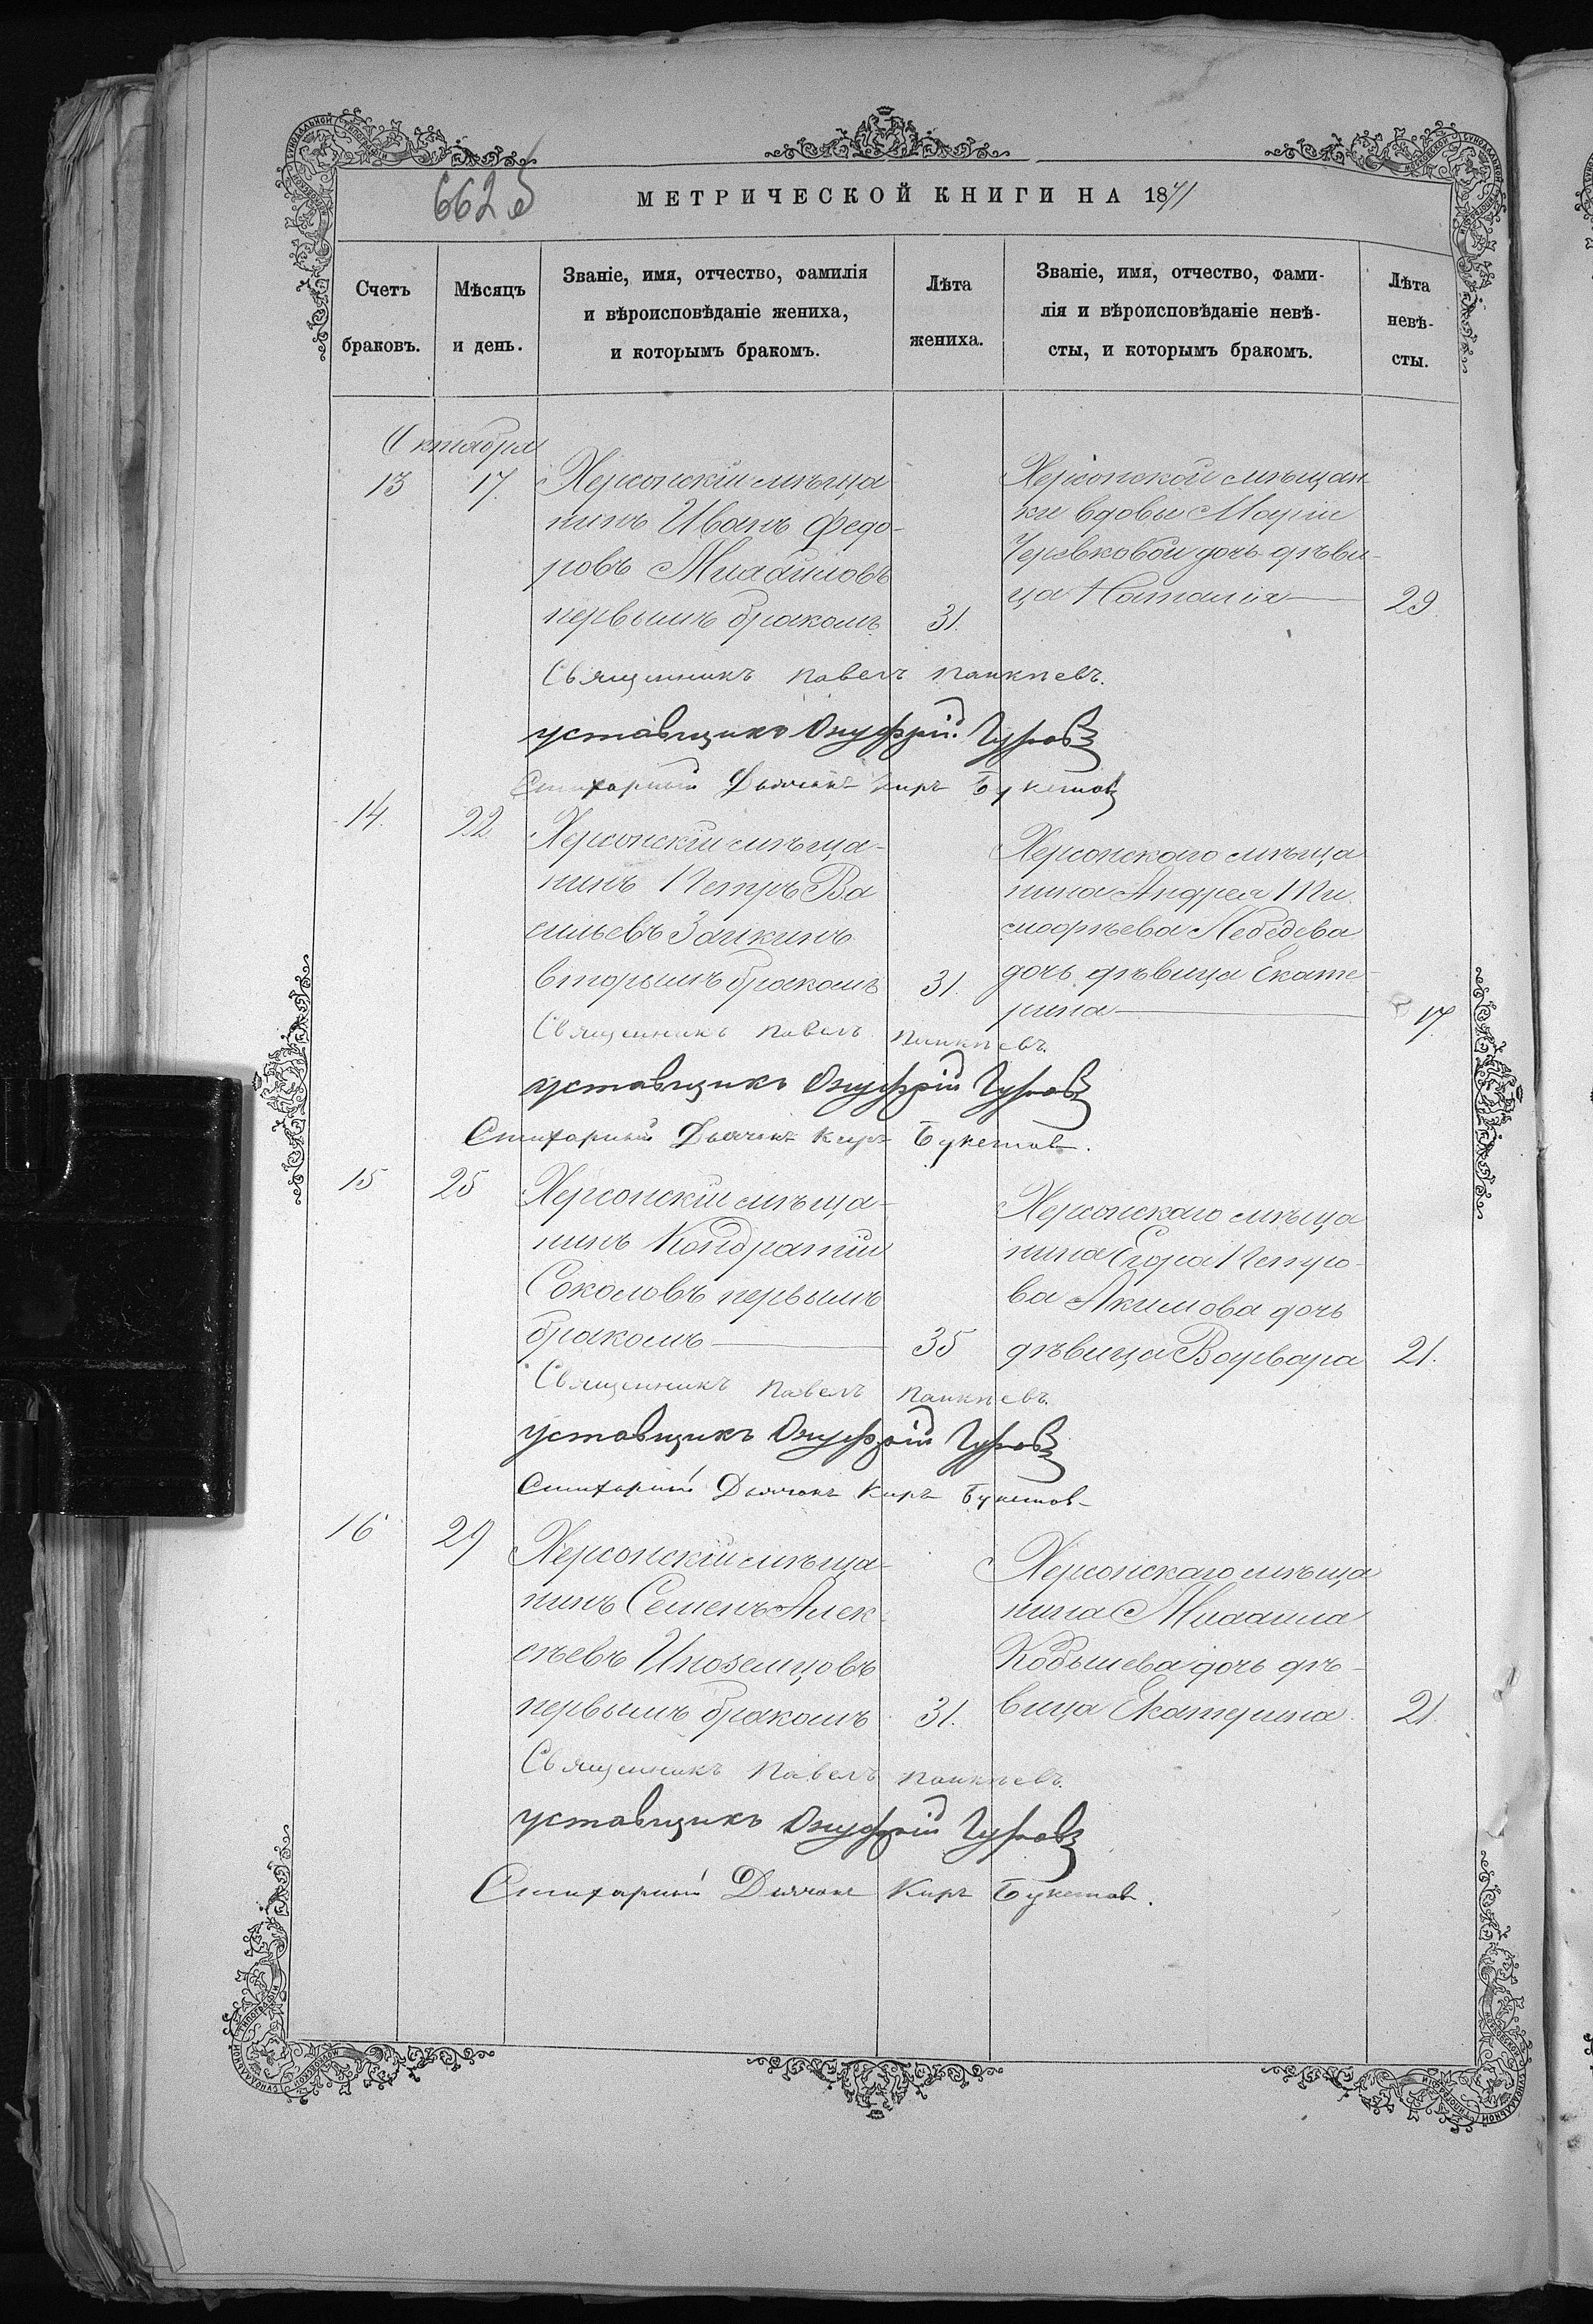 662
МЕТРИЧЕСКОЙ КНИГИ НА 1871
Счетъ браковъ.
Мѣсяцъ и день.
Званіе, имя, отчество, фамилія
и вѣроисповѣданіе жениха,
и которымъ бракомъ.
Лѣта жениха.
Званіе, имя, отчество, фами-
лія и вѣроисповѣданіе невѣ-
сты, и которымъ бракомъ.
Лѣта невѣ-
сты.
Октября
13 17.
Херсонскій мѣща
нинъ Иванъ Федо-
ровъ Михайловъ
первымъ бракомъ
31.
Херсонской мѣщан
ки вдовы Маріи
дочь дѣви-
ца Наталія
29
Священникъ Павелъ
уставщикъ Онуфрій Гуровъ
Стихарный Дьячокъ Киръ Букетов
14. 22
Херсонскій мѣща-
нинъ Петръ Ва
сильевъ Заикинъ
вторымъ бракомъ
31.
Херсонского мѣща
нина Андрея Ти
моѳѣева Лебедева
дочь дѣвица Екате-
рина
17
Священникъ Павелъ
уставщикъ Онуфрій Гуровъ
Стихарный Дьячокъ Киръ Букетов.
15 25
Херсонскій мѣща-
нинъ Кондратій
Соколовъ первымъ
бракомъ
35
Херсонскаго мѣща
нина Егора Петро-
ва Акимова дочь
дѣвица Варвара
21.
Священникъ Павелъ
уставщикъ Онуфрій Гуровъ
Стихарный Дьячокъ Киръ Букетов
16 29
Херсонскій мѣща-
нинъ Семенъ Алек
сѣевъ Иноземцовъ
первымъ бракомъ
31.
Херсонскаго мѣща
нина Михаила
Кобышева дочь дѣ-
вица Екатерина
21.
Священникъ Павелъ
уставщикъ Онуфрій Гуровъ
Стихарный Дьячокъ Киръ Букетов.